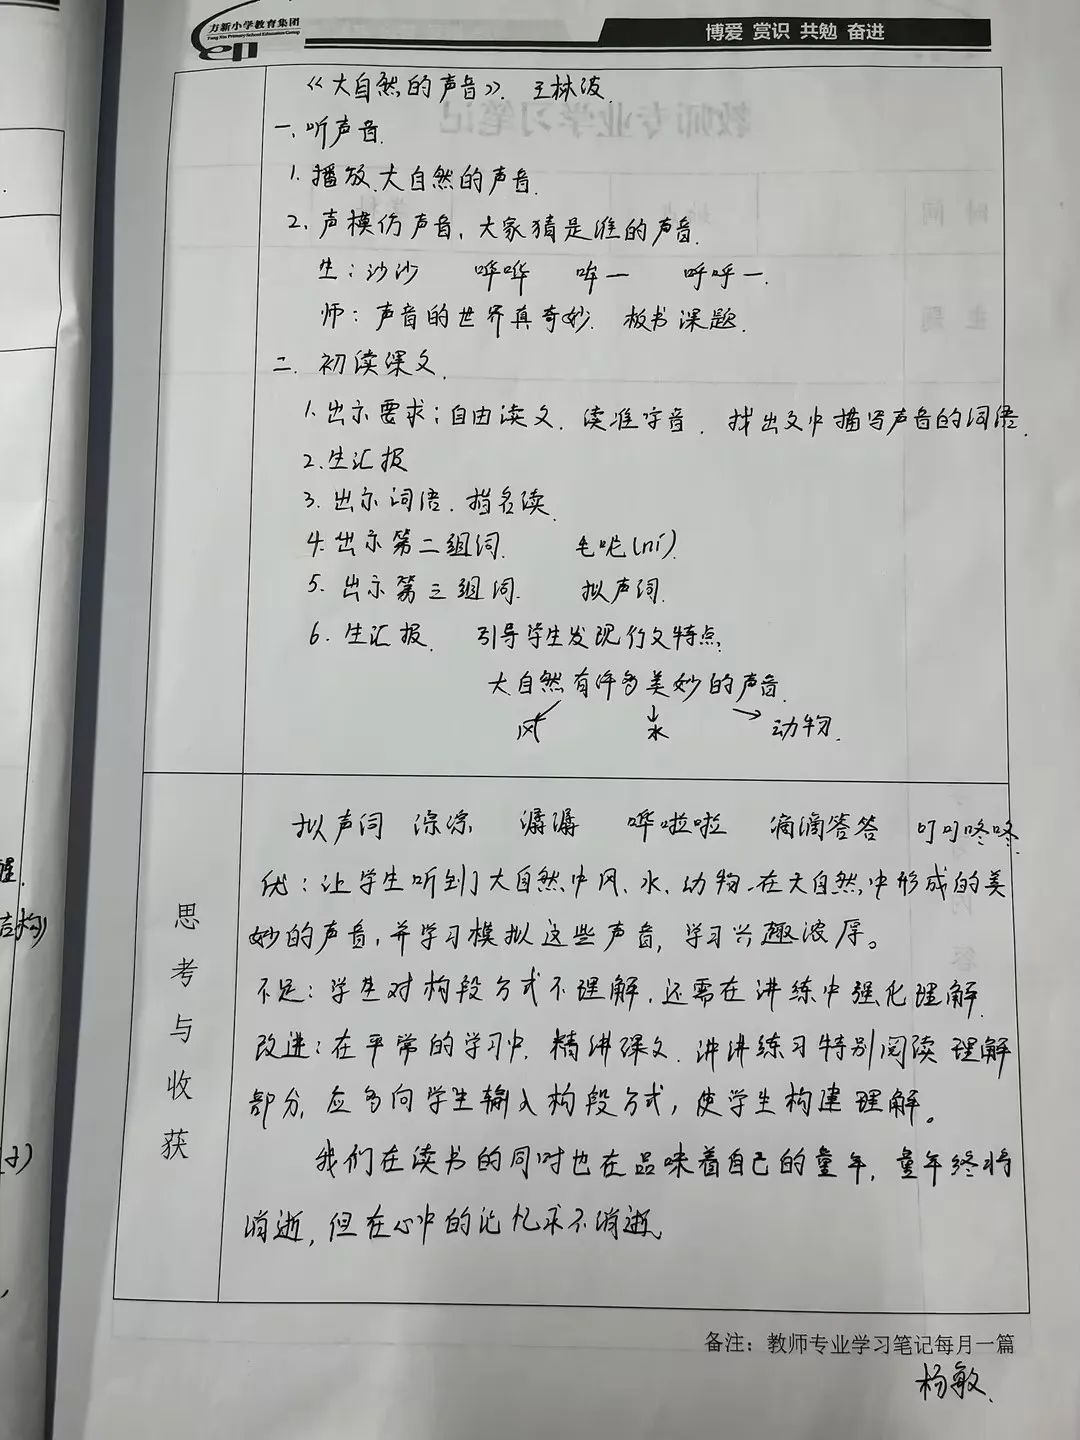 力新小学教育集团
博爱 赏识 共勉 奋进
《大自然的声音》. 王林波.
一. 听声音.
1. 播放大自然的声音.
2. 声模仿声音, 大家猜是谁的声音.
生: 沙沙 哗哗 哞一 呼呼一.
师: 声音的世界真奇妙. 板书课题.
二. 初读课文.
1. 出示要求: 自由读文. 读准字音. 找出文中描写声音的词语.
2. 生汇报
3. 出示词语. 指名读.
4. 出示第二组词. 毛呢(ní).
5. 出示第三组词. 拟声词.
6. 生汇报. 引导学生发现行文特点.
大自然有许多美妙的声音.
风 水 动物.
拟声词 淙淙 潺潺 哗啦啦 滴滴答答 叮叮咚咚
优: 让学生听到了大自然中风、水、动物、在大自然中形成的美
妙的声音, 并学习模拟这些声音, 学习兴趣浓厚。
不足: 学生对构段方式不理解, 还需在讲练中强化理解.
改进: 在平常的学习中, 精讲课文. 讲讲练习特别阅读理解
部分, 应多向学生输入构段方式, 使学生构建理解。
我们在读书的同时也在品味着自己的童年, 童年终将
消逝, 但在心中的记忆永不消逝.
思考与收获
备注: 教师专业学习笔记每月一篇
杨敏.
醒.
结构)